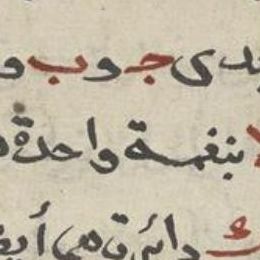 دى جوب و
بنغمة واحدة
دائرة هى أيض